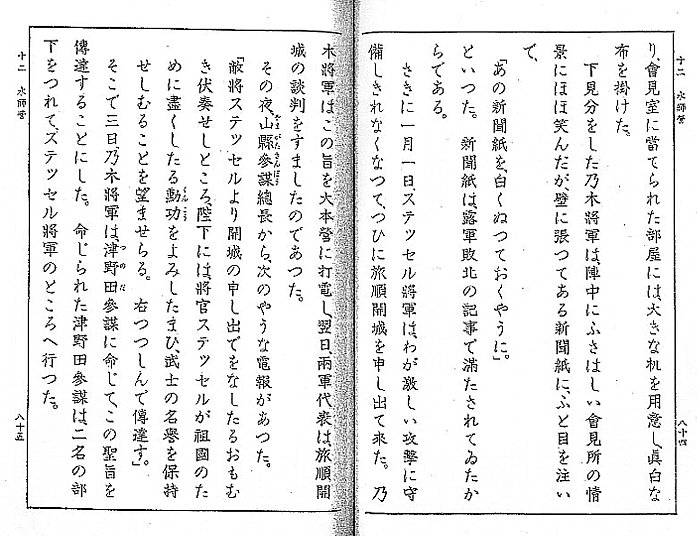 十二 水師營
八十四
り、會見室に當てられた部屋には、大きな机を用意し、眞白な
布を掛けた。
下見分をした乃木將軍は、陣中にふさはしい會見所の情
景にほほ笑んだが、壁に張つてある新聞紙に、ふと目を注い
て、
「あの新聞紙を、白くぬつておくやうに。」
といつた。新聞紙は、露軍敗北の記事で滿たされてゐたか
らである。
さきに一月一日、ステッセル將軍は、わが激しい攻擊に守
備しきれなくなつて、つひに旅順開城を申し出て來た。乃
木將軍はこの旨を大本營に打電し、翌日、兩軍代表は、旅順開
城の談判をすましたのであつた。
その夜、山縣參謀總長から、次のやうな電報があつた。
「敵將ステッセルより開城の申し出でをなしたるおもむ
き伏奏せしところ、陛下には、將官ステッセルが祖國のた
めに盡くしたる勳功をよみしたまひ、武士の名譽を保持
せしむることを望ませらる。右つつしんで傳達す。」
そこで三日、乃木將軍は、津野田參謀に命じて、この聖旨を
傳達することにした。命じられた津野田參謀は、二名の部
下をつれて、ステッセル將軍のところへ行つた。
十二 水師營
八十五